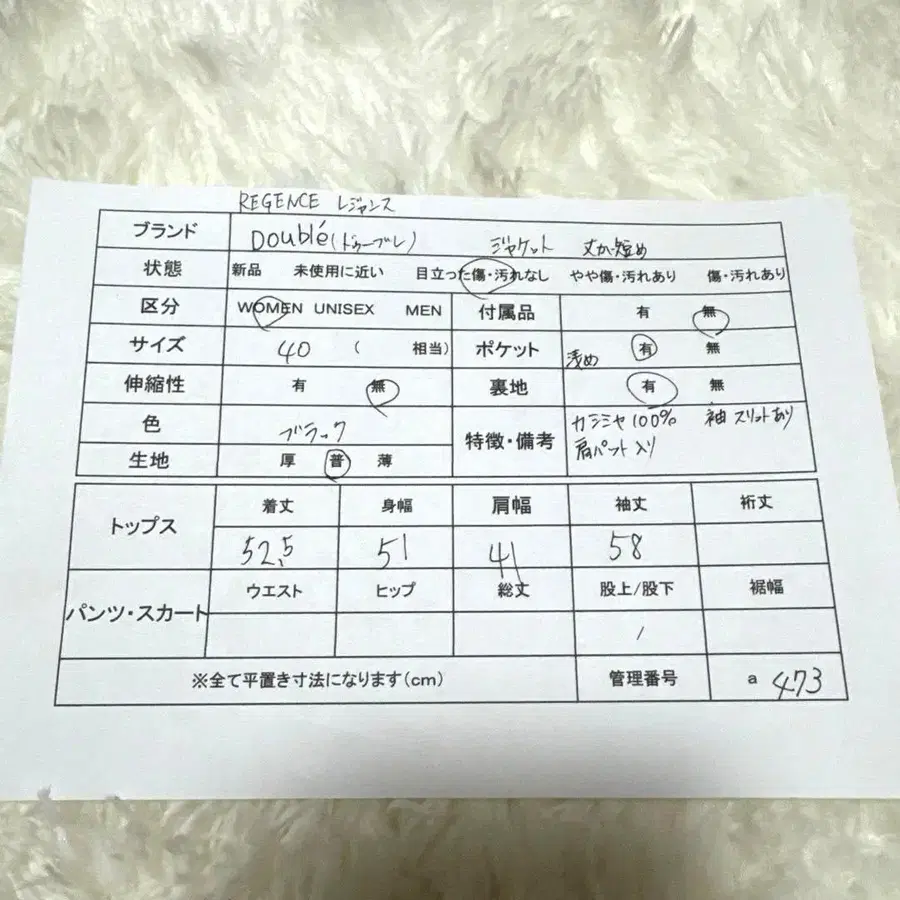 REGENCE レジャンス
ブランド Doublé(ドゥーブレ) ジャケット 丈か短め
状態 新品 未使用に近い 目立った傷・汚れなし やや傷・汚れあり 傷・汚れあり
区分 WOMEN UNISEX MEN 付属品 有 無
サイズ 40 ( 相当) ポケット 浅め 有 無
伸縮性 有 無 裏地 有 無
色 ブラック 特徴・備考 カシミヤ100% 袖スリットあり
肩パット入り
生地 厚 普 薄
トップス 着丈 身幅 肩幅 袖丈 裄丈
52.5 51 41 58
パンツ・スカート ウエスト ヒップ 総丈 股上/股下 裾幅
/
※全て平置き寸法になります(cm) 管理番号 a 473